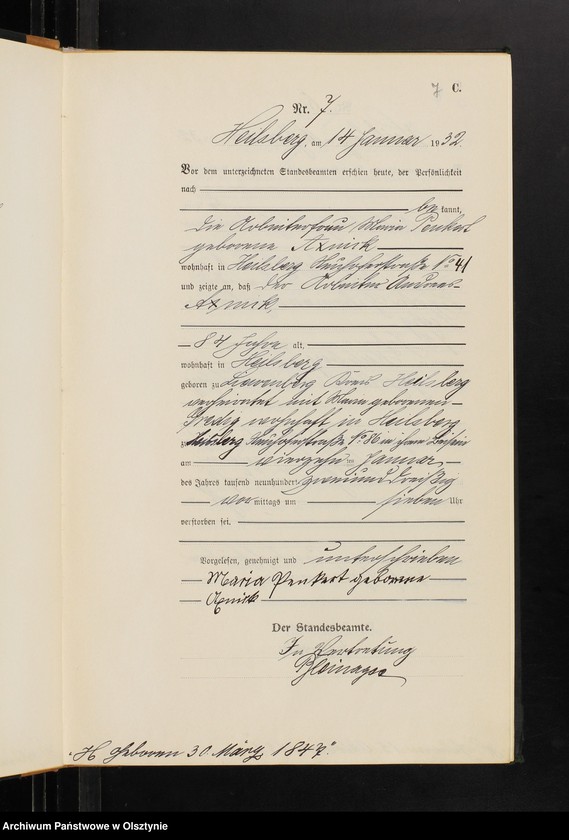 7 C.
Nr. 7.
Heilsberg, am 14 Januar 1932.
Vor dem unterzeichneten Standesbeamten erschien heute, der Persönlichkeit
nach
be kannt,
die Arbeiterfrau Maria Penkert
geborene
wohnhaft in Heilsberg Neuhoferstraße No 41
und zeigte an, daß der Arbeiter Andreas
84 Jahre alt,
wohnhaft in Heilsberg
geboren zu Liewenberg Kreis Heilsberg
verheiratet mit geborenen
wohnhaft in Heilsberg
zu Heilsberg Neuhoferstraße No in
am vierzehn ten Januar
des Jahres tausend neunhundert zweiunddreißig
vor mittags um sieben Uhr
verstorben sei.
Vorgelesen, genehmigt und unterschrieben
Maria Penkert geborene
Der Standesbeamte.
In Vertretung
"H geboren 30 März 1847".
Archiwum Państwowe w Olsztynie